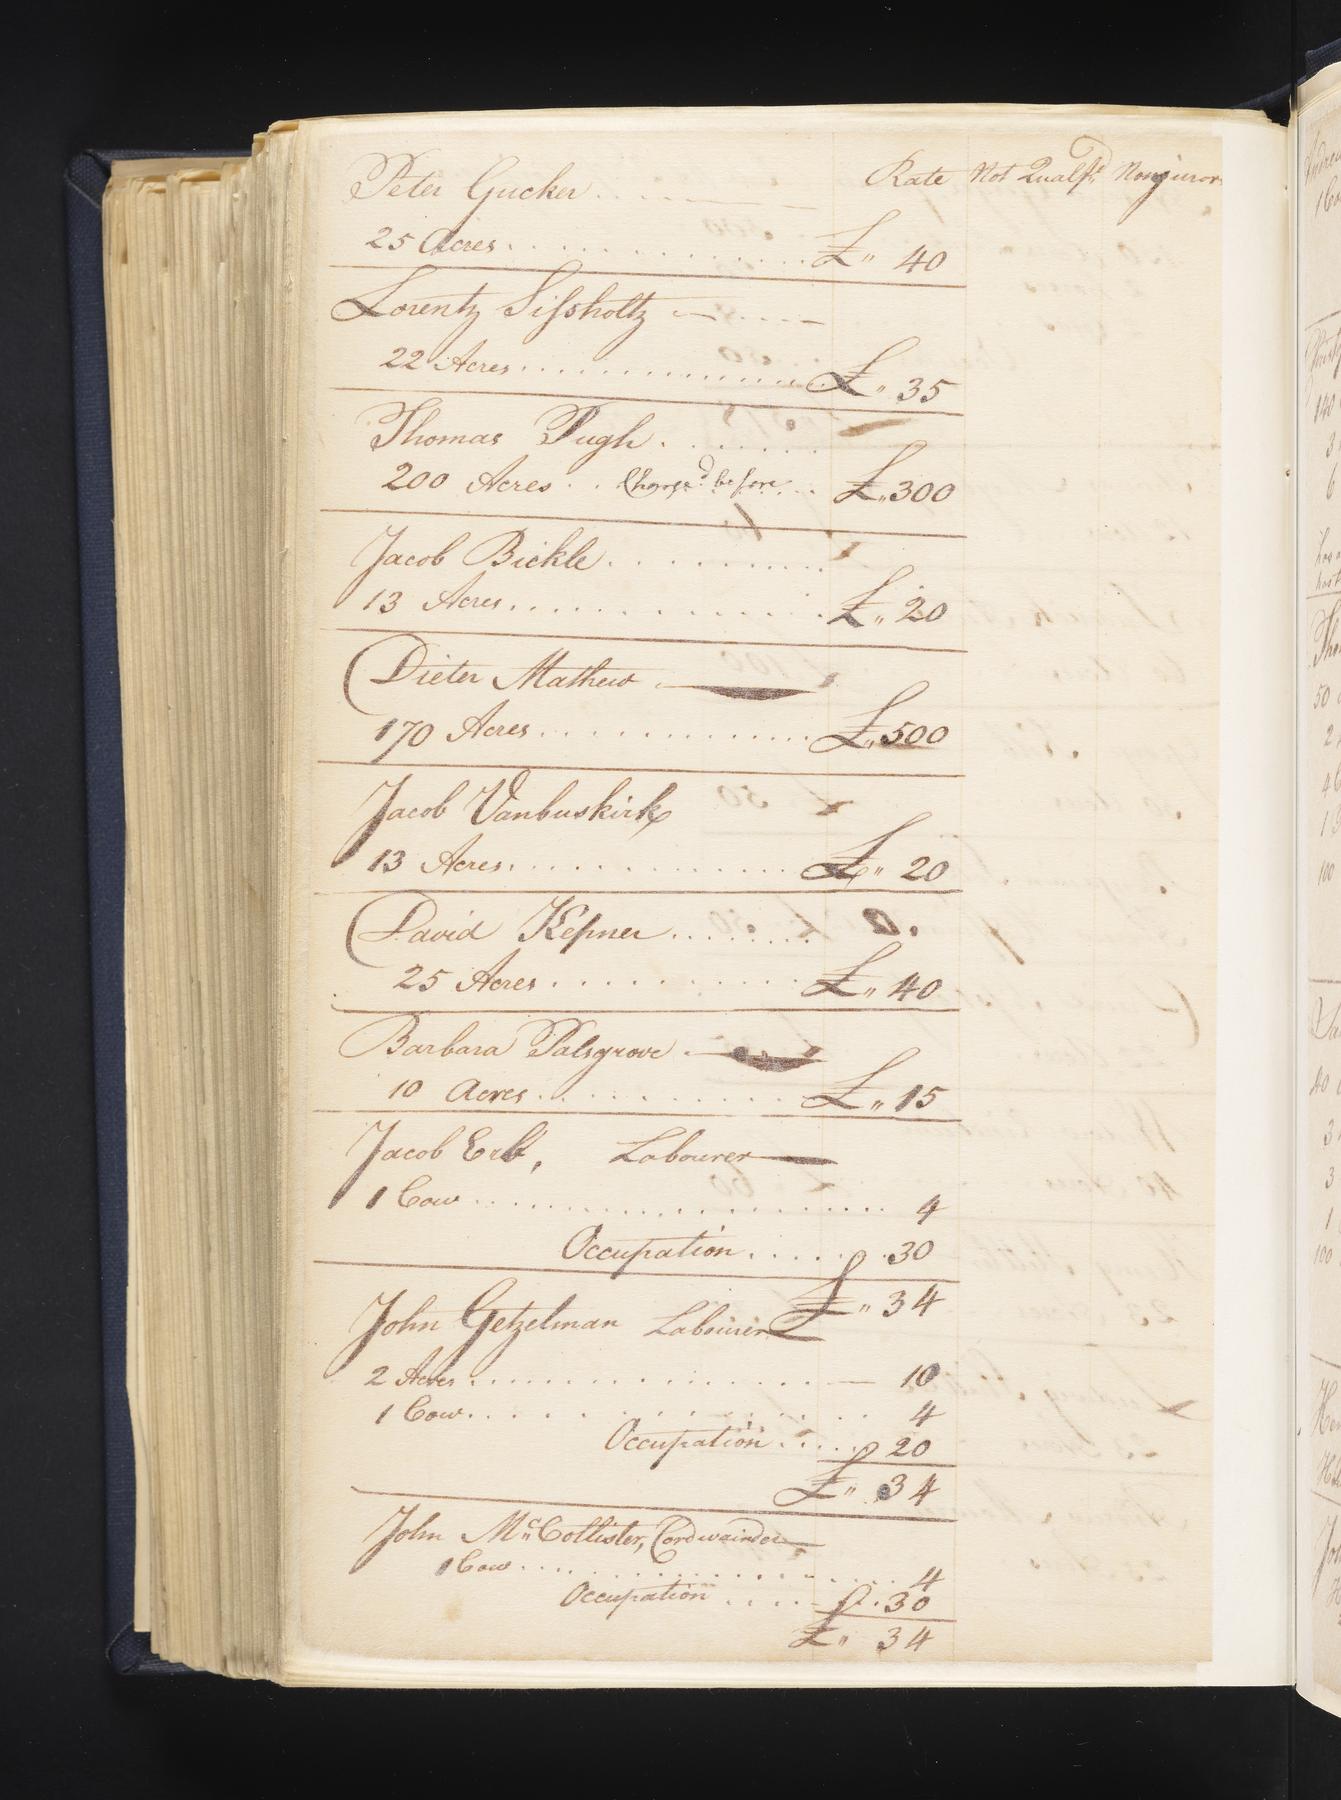 Rate Not Qualfd Nonjuror
Peter Gucker
25 Acres £ " 40
Lorentz Sissholtz
22 Acres £ " 35
Thomas Pugh
200 Acres Charged before £ " 300
Jacob Bickle
13 Acres £ " 20
Dieter Mathew
170 Acres £ " 500
Jacob Vanbuskirk
13 Acres £ " 20
David Kepner
25 Acres £ " 40
Barbara Palsgrove
10 Acres £ " 15
Jacob Erb, Labourer
1 Cow 4
Occupation 30
£ " 34
John Getzelman Labourer
2 Acres 10
1 Cow 4
Occupation 20
£ " 34
John McCollister, Cordwainder
1 Cow 4
Occupation 30
£ " 34